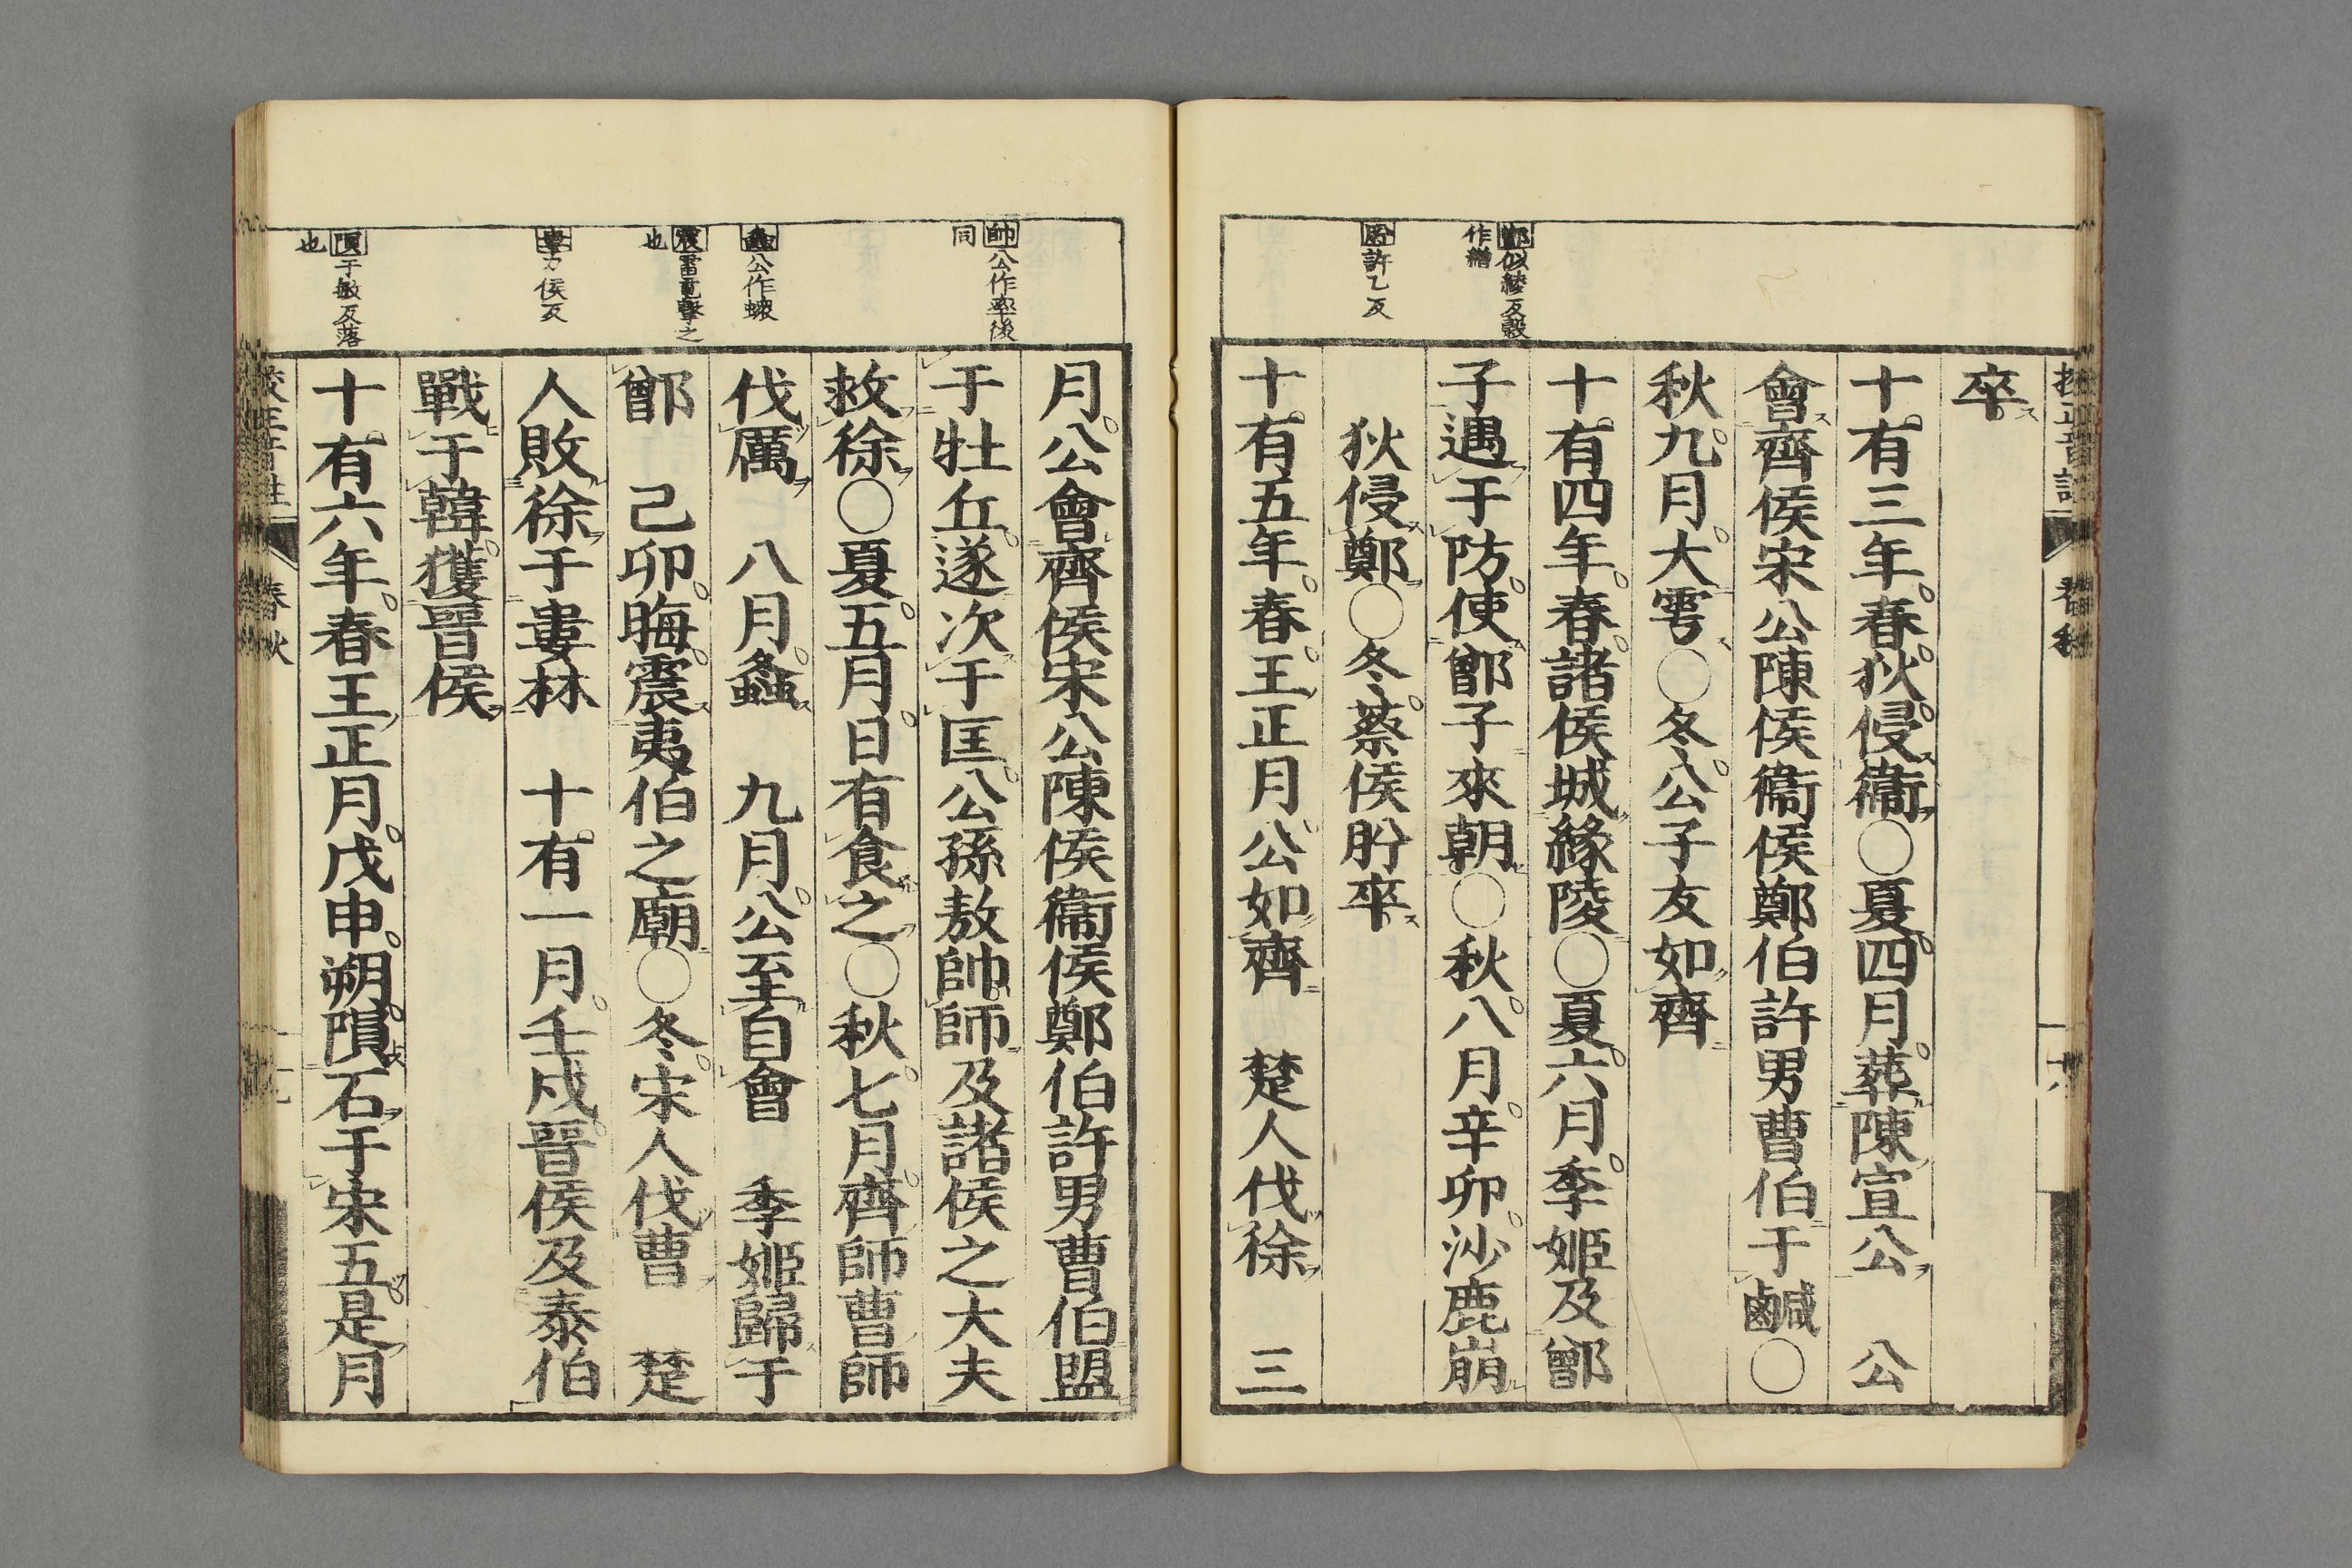 鄫似綾反穀
作繒
肸許乙反
卒
十有三年春狄侵衞○夏四月葬陳宣公　公
會齊侯宋公陳侯衞侯鄭伯許男曹伯于鹹○
秋九月大雩○冬公子友如齊
十有四年春諸侯城緣陵○夏六月季姬及鄫
子遇于防使鄫子來朝○秋八月辛卯沙鹿崩
狄侵鄭○冬蔡侯肸卒
十有五年春王正月公如齊　楚人伐徐　三
春秋
帥公作率後
同
螽公作蝝
震雷電擊之
也
婁力侯反
隕于敏反落
也
月公會齊侯宋公陳侯衞侯鄭伯許男曹伯盟
于牡丘遂次于匡公孫敖帥師及諸侯之大夫
救徐○夏五月日有食之○秋七月齊師曹師
伐厲　八月螽　九月公至自會　季姬歸于
鄫　己卯晦震夷伯之廟○冬宋人伐曹　楚
人敗徐于婁林　十有一月壬戌晉侯及泰伯
戰于韓獲晉侯
十有六年春王正月戊申朔隕石于宋五是月
春秋